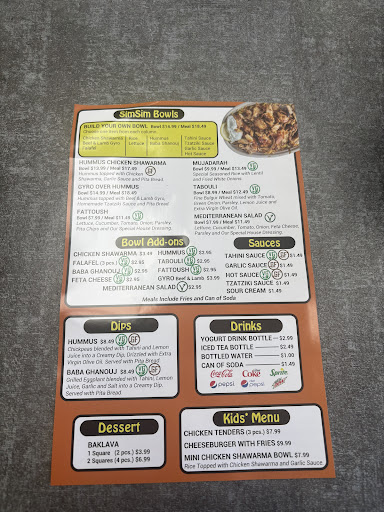 SimSim Bowls
BUILD YOUR OWN BOWL Bowl $14.99 / Meal $18.49
Choose one item from each column.
Chicken Shawarma
Beef & Lamb Gyro
Falafel
Rice
Lettuce
Hummus
Baba Ghanouj
Tahini Sauce
Tzatziki Sauce
Garlic Sauce
Hot Sauce
HUMMUS CHICKEN SHAWARMA
Bowl $13.99 / Meal $17.49
Hummus topped with Chicken
Shawarma, Garlic Sauce and Pita Bread
GYRO OVER HUMMUS
Bowl $14.99 / Meal $18.49
Hummus topped with Beef & Lamb Gyro,
Homemade Tzatziki Sauce and Pita Bread
FATTOUSH
Bowl $7.99 / Meal $11.49
Lettuce, Cucumber, Tomato, Onion, Parsley,
Pita Chips and Our Special House Dressing.
MUJADARAH
Bowl $9.99 / Meal $13.49
Special Seasoned Rice with Lentil
and Fried White Onions.
TABOULI
Bowl $8.99 / Meal $12.49
Fine Bulgur Wheat mixed with Tomato,
Green Onion, Parsley, Lemon Juice and
Extra Virgin Olive Oil.
MEDITERRANEAN SALAD
Bowl $7.99 / Meal $11.49
Lettuce, Cucumber, Tomato, Onion, Feta Cheese,
Parsley and Our Special House Dressing.
Bowl Add-ons
CHICKEN SHAWARMA $3.49
FALAFEL (3 pcs.) $2.95
BABA GHANOUJ $2.95
FETA CHEESE $2.95
HUMMUS $2.95
TABOULI $2.95
FATTOUSH $2.95
GYRO Beef & Lamb $3.99
MEDITERRANEAN SALAD $2.95
Sauces
TAHINI SAUCE GF $1.49
GARLIC SAUCE GF $1.49
HOT SAUCE GF $1.49
TZATZIKI SAUCE $1.49
SOUR CREAM $1.49
Meals Include Fries and Can of Soda
Dips
HUMMUS $8.49 GF
Chickpeas blended with Tahini and Lemon
Juice into a Creamy Dip, Drizzled with Extra
Virgin Olive Oil. Served with Pita Bread
BABA GHANOUJ $8.49 GF
Grilled Eggplant blended with Tahini, Lemon
Juice, Garlic and Salt into a Creamy Dip.
Served with Pita Bread
Drinks
YOGURT DRINK BOTTLE $2.99
ICED TEA BOTTLE $2.49
BOTTLED WATER $1.00
CAN OF SODA $1.49
Coca-Cola
Diet Coke
Sprite
pepsi
diet pepsi
Dessert
BAKLAVA
1 Square (2 pcs.) $3.99
2 Squares (4 pcs.) $6.99
Kids' Menu
CHICKEN TENDERS (3 pcs.) $7.99
CHEESEBURGER WITH FRIES $9.99
MINI CHICKEN SHAWARMA BOWL $7.99
Rice Topped with Chicken Shawarma and Garlic Sauce